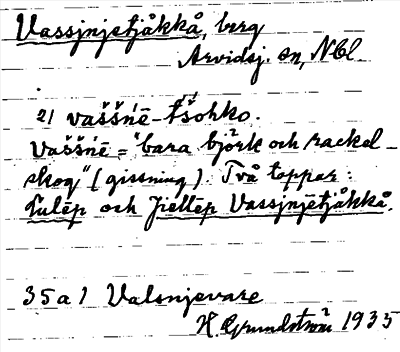 Vassjnjetjåkkå, berg
Arvidsj. sn, Nbl.
2/ vaššńē-tšohko.
Vaššńē = "bara björk och rackel-
skog" (gissning). Två toppar:
Lulēp och Jiettēp Vassjnjētjåkkå.
35a1 Valsnjevare
H. Grundström 1935